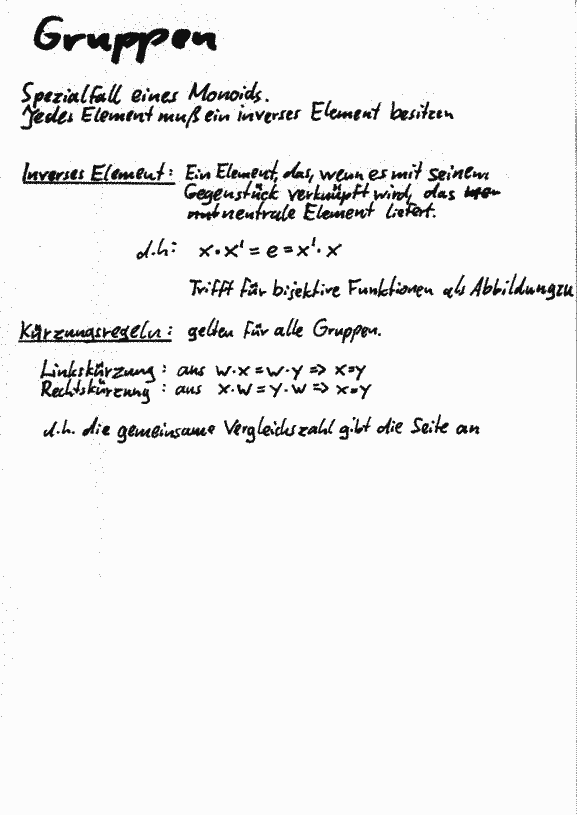 Gruppen
Spezialfall eines Monoids.
Jedes Element muß ein inverses Element besitzen
Inverses Element: Ein Element, das, wenn es mit seinem
Gegenstück verknüpft wird, das
neutrale Element liefert.
d.h: x·x' = e = x'·x
Trifft für bijektive Funktionen als Abbildung zu
Kürzungsregeln: gelten für alle Gruppen.
Linkskürzung: aus w·x=w·y => x=y
Rechtskürzung: aus x·w=y·w => x=y
d.h. die gemeinsame Vergleichszahl gibt die Seite an